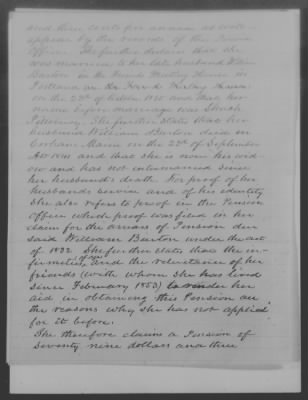 and three cents per annum as will
appear by the records of the Pension
Office. She further declares that she
was married to her late husband William
Barton in the Friends Meeting House in
Portland on the
on the 22d of 1835 and that her
name before marriage was
She further states that her
husband William Barton died in
Maine on the 22d of September
and that she is now his wid-
ow and has not intermarried since
her husband's death. For proof of her
husbands service and of his identity
She also refers to proof in the Pension
Office which proof was filed in her
claim for the arrears of Pension due
said William Barton under the act
of 1832. She further states that the in-
firmities of age, and the reluctance of her
friends (with whom she has lived
since February 1853) to render her
aid in obtaining this Pension are
the reasons why she has not applied
for it before.
She therefore claims a Pension of
Seventy nine dollars and three